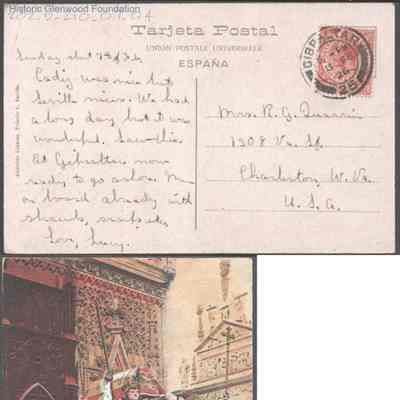 Historic Glenwood Foundation
Tarjeta Postal
UNION POSTALE UNIVERSELLE
ESPAÑA
GIBRALTAR
26
Sunday
Cadiz was nice but
Seville nicer. We had
a long day but it was
wonderful.
At Gibraltar now
ready to go ashore. Men
on board already with
shawls, scarfs etc
Love, Lucy.
Mrs. R. G. Quarrier
1308 Va. St.
Charleston, W. Va.
U. S. A.